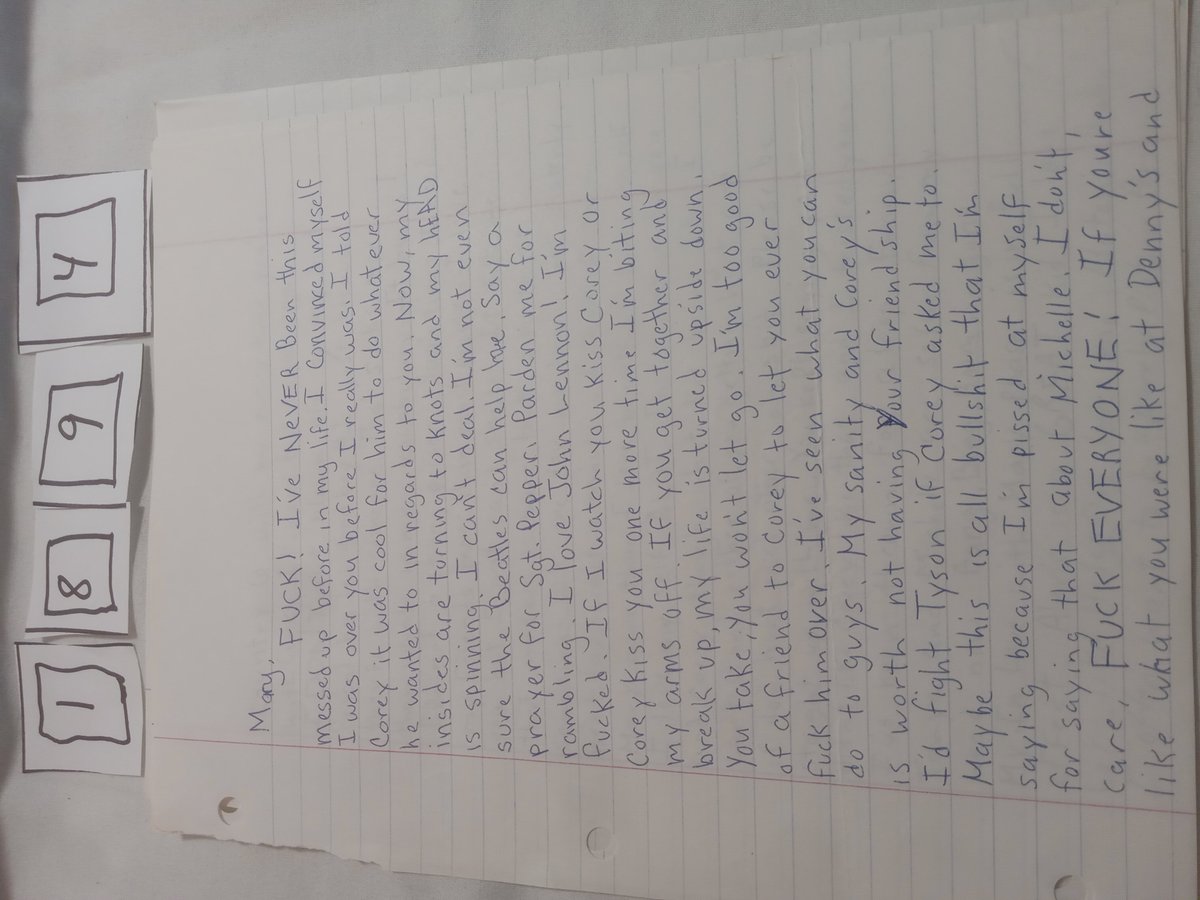 1 8 9 4
Mary,
FUCK! I've NeVER Been this
messed up before in my life. I convinced myself
I was over you before I really was. I told
Corey it was cool for him to do whatever
he wanted to in regards to you. Now, my
insides are turning to knots and my hEAD
is spinning. I can't deal. I'm not even
sure the Beatles can help me. Say a
prayer for Sgt. Pepper. Parden me for
rambling. I love John Lennon! I'm
fucked. If I watch you kiss Corey or
Corey kiss you one more time I'm biting
my arms off. If you get together and
break up, my life is turned upside down.
You take, you won't let go. I'm too good
of a friend to Corey to let you ever
fuck him over. I've seen what you can
do to guys. My sanity and Corey's
is worth not having your friendship.
I'd fight Tyson if Corey asked me to.
Maybe this is all bullshit that I'm
saying because I'm pissed at myself
for saying that about Michelle. I don't
care, FUCK EVERYONE! If you're
like what you were like at Denny's and